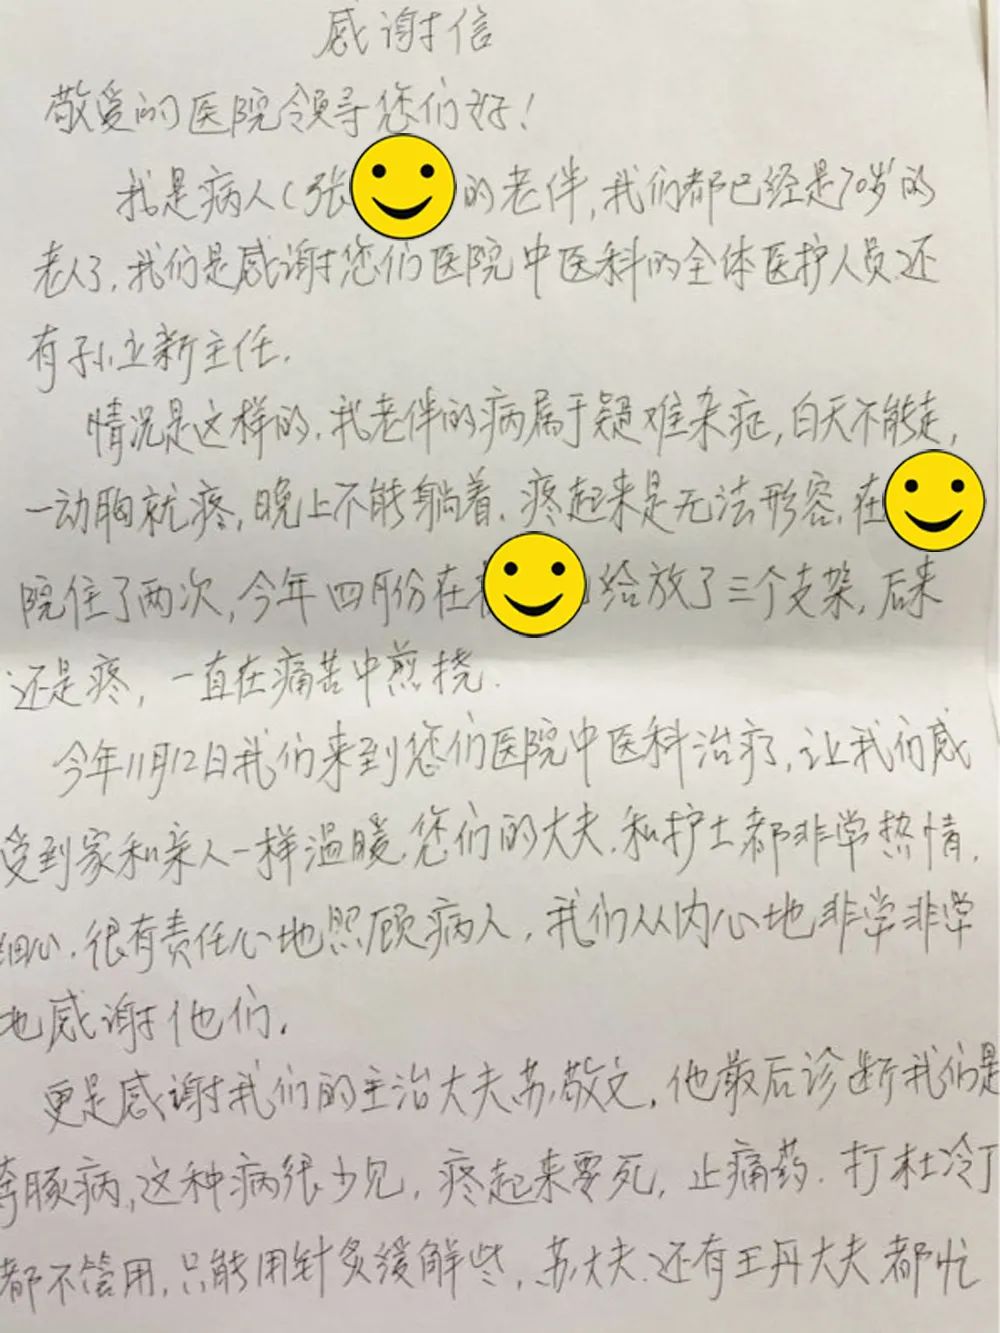 感谢信
敬爱的医院领导您们好!
我是病人(张 的老伴,我们都已经是70岁的
老人了,我们是感谢您们医院中医科的全体医护人员,还
有孙立新主任.
情况是这样的.我老伴的病属于疑难杂症,白天不能走,
一动胸就疼,晚上不能躺着.疼起来是无法形容.在
院住了两次,今年四月份在 给放了三个支架,后来
还是疼,一直在痛苦中煎挠.
今年11月12日我们来到您们医院中医科治疗,让我们感
受到家和亲人一样温暖.您们的大夫.和护士都非常热情.
细心.很有责任心地照顾病人,我们从内心地非常非常
地感谢他们.
更是感谢我们的主治大夫苏敬文,他最后诊断我们是
奔豚病,这种病很少见,疼起来要死,止痛药.打杜冷丁
都不管用,只能用针炙缓解些,苏大夫.还有王丹大夫.都忙